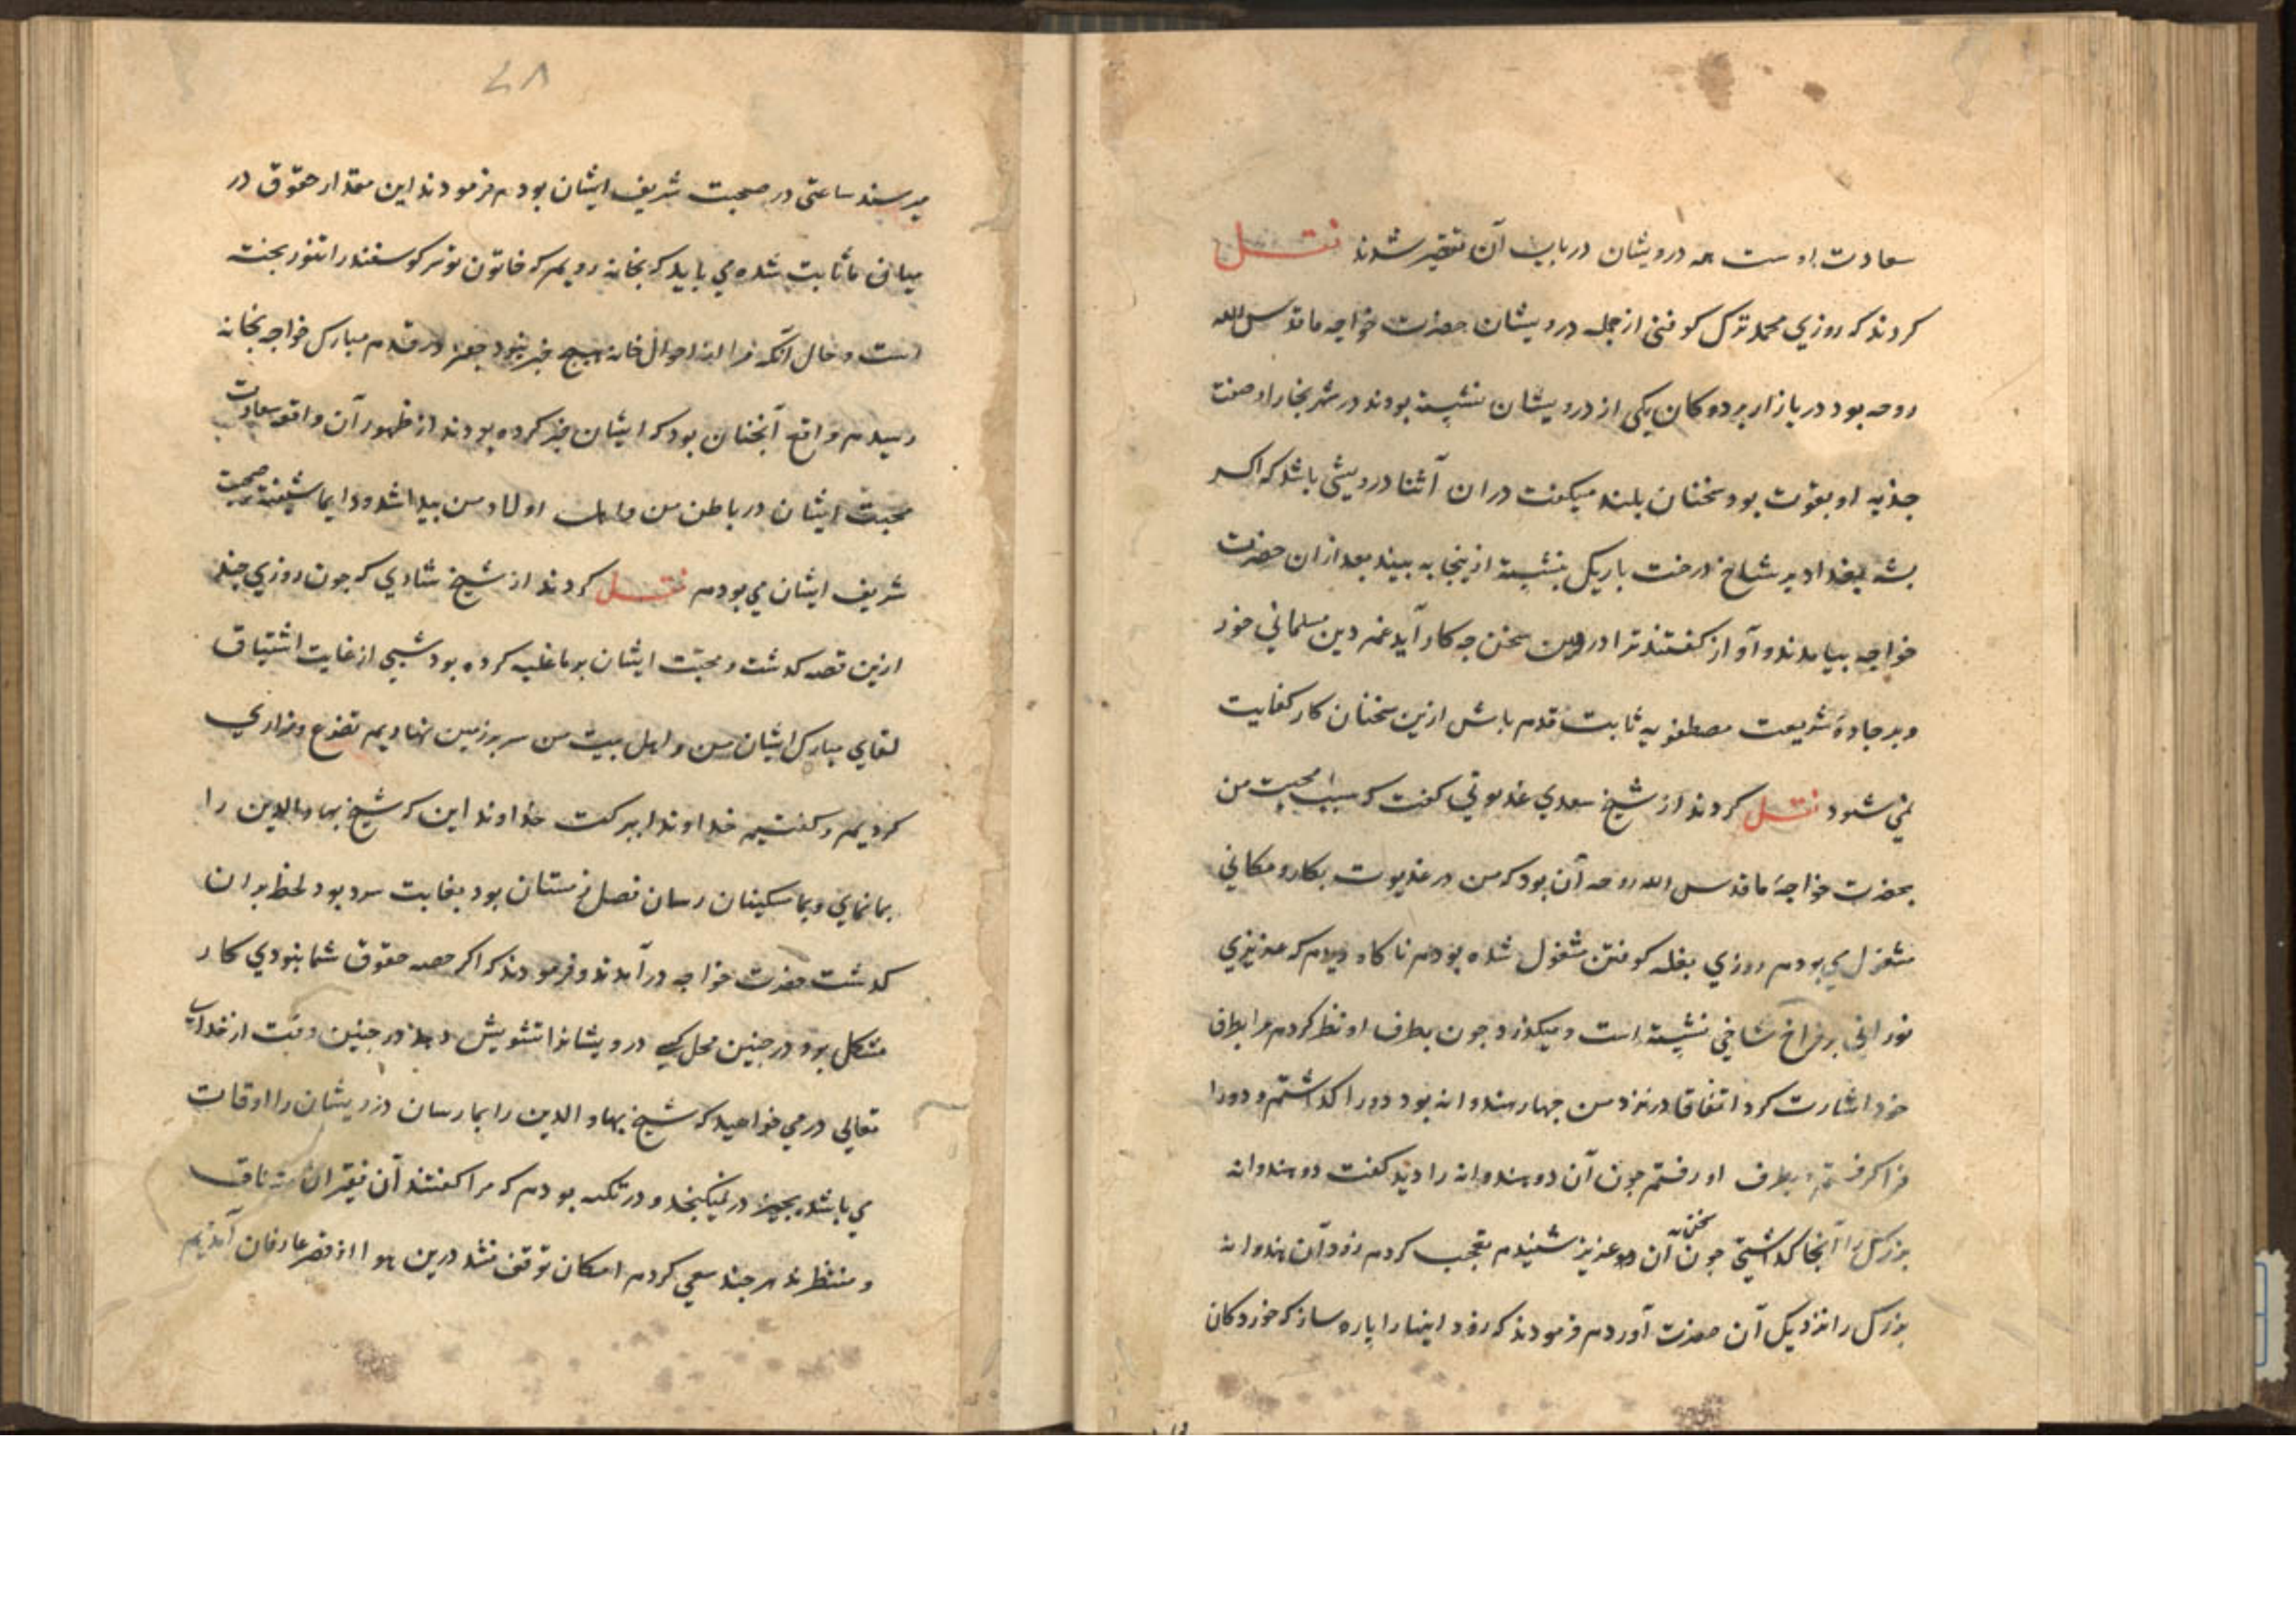 سعادت او ست همه درویشان در باب آن فقیر شدند نقل
کردند که روزی محمد ترک کوفنی از جمله درویشان حضرت خواجه ما قدس الله
روحه بود در بازار بر دوکان یکی از درویشان نشسته بودند در شهر بخارا و صفت
جذبه او بقوت بود سخنان بلند میکفت دران آثنا درویشی باشد که اکر
پشه ببغداد بر شاخ درخت باریک بنشسته ازینجا به بیند بعد ازان حضرت
خواجه بیامدند و آواز کفتند ترا درین سخن چه کار آید غم دین مسلمانی خور
و بر جادهٔ شریعت مصطفویه ثابت قدم باش ازین سخنان کار کفایت
نمی شود نقل کردند از شیخ سعدی غدیوتی کفت که سبب محبت من
بحضرت خواجهٔ ما قدس الله روحه آن بود که من در غدیوت بکار و مکانی
مشغول می بودم روزی بغله کوفتن مشغول شده بودم ناکاه دیدم که عزیزی
نورانی بر فراخ شاخی نشسته است و میکذرد چون بطرف او نظر کردم مرا بطرف
خود اشارت کرد اتفاقا در نزد من چهار هندوانه بود دو را کذاشتم و دو را
فرا کرفتم و بطرف او رفتم چون آن دو هندوانه را دید کفت دو هندوانه
بزرک را آنجا کذاشتی چون سخن آن عزیز شنیدم تعجب کردم زود آن هندوانه
بزرک را نزدیک آن حضرت آوردم فرمودند که زود اینها را پاره ساز که خوردکان
٧٨
میرسند ساعتی در صحبت شریف ایشان بودم فرمودند این مقدار حقوق در
میان ما ثابت شده می باید که بخانه رویم که خاتون تو سر کوسفند را تنور پخته
است و حال آنکه مرا از احوال خانه هیچ خبر نبود چون در قدم مبارک خواجه بخانه
رسیدم واقع آنچنان بود که ایشان خبر کرده بودند از ظهور آن واقعه سعادت
محبت ایشان در باطن من و اهل اولاد من پیدا شد و دایما شیفته صحبت
شریف ایشان می بودم نقل کردند از شیخ شادی که چون روزی چند
ازین قصه کذشت و محبّت ایشان بر ما غلبه کرده بود شبی از غایت اشتیاق
لقای مبارک ایشان من و اهل بیت من سر بر زمین نهادیم تضرع و زاری
کردیم و کفتیم خداوندا ببرکت خداوند این که شیخ بهاءالدین را
بما نمای و بما مسکینان رسان فصل زمستان بود بغایت سرد بود لحظ بران
کذشت حضرت خواجه در آمدند و فرمودند که اکر حصه حقوق شما بنودی کار
مشکل بود در چنین محل کسی درویشانرا تشویش دهد در چنین وقت از خدای
تعالی در می خواهید که شیخ بهاء الدین را بما رسان درویشان را اوقات
می باشد بچیز در نمیکنجد و در تکیه بودم که مرا کفتند آن فقیران مشتاق
و منتظرند هر چند سعی کردم امکان توقف نشد درین هوا از قصر عارفان آمدیم